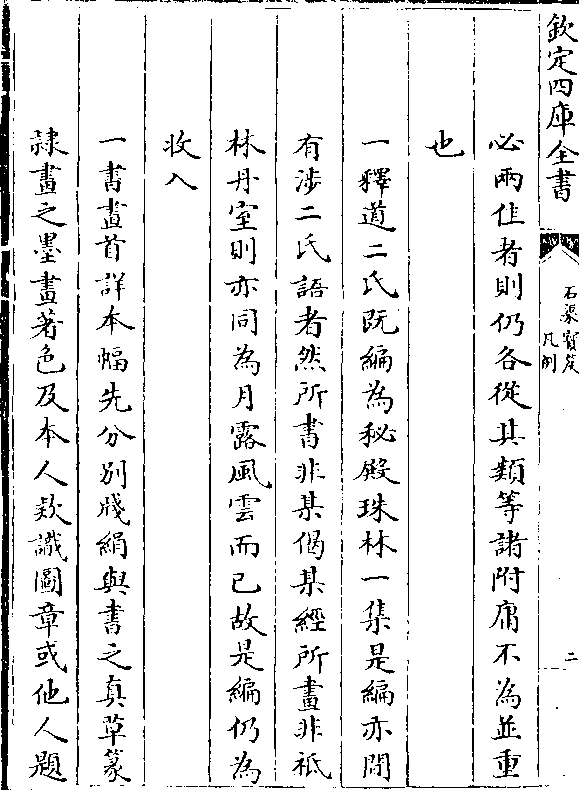 欽定四庫全書
石渠寶笈
凡例
二
必兩佳者則仍各從其類等諸附庸不為並重
也
一釋道二氏既編為秘殿珠林一集是編亦間
有涉二氏語者然所書非某偈某經所畫非祗
林丹室則亦同為月露風雲而已故是編仍為
收入
一書畫首詳本幅先分別牋絹與書之真草篆
隸畫之墨畫著色及本人欵識圖章或他人題